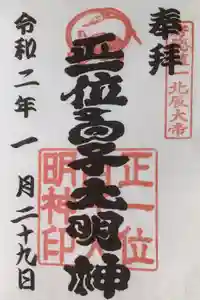 奉拝
北辰大帝
正一位高子大明神
正一位
明神印
令和二年一月二十九日